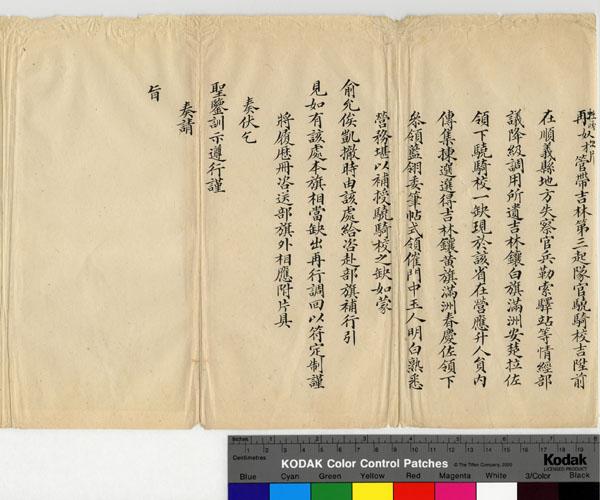 再奴才管帶吉林第三起隊官驍騎校吉陞前
在順義縣地方失察官兵勒索驛站等情經部
議降級調用所遺吉林鑲白旗滿洲安楚拉佐
領下驍騎校一缺現於該省在營應升人員內
傳集揀選選得吉林鑲黃旗滿洲春慶佐領下
叅領藍翎委筆帖式領催門中玉人明白熟悉
營務堪以補授驍騎校之缺如蒙
俞允俟凱撤時由該處給咨赴部旗補行引
見如有該處本旗相當缺出再行調回以符定制謹
將履歷冊咨送部旗外相應附片具
奏伏乞
聖鑒訓示遵行謹
奏請
旨
Inches 1 2 3 4 5 6 7
Centimetres 1 2 3 4 5 6 7 8 9 10 11 12 13 14 15 16 17 18 19
KODAK Color Control Patches © The Tiffen Company, 2000 Kodak
Blue Cyan Green Yellow Red Magenta White 3/Color Black